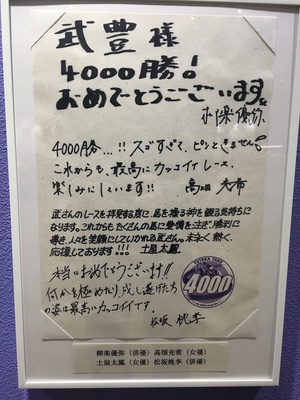 武豊様
4000勝!
おめでとうございます。
柳楽優弥
4000勝...!! スゴすぎて、ピンときません!
これからも、最高にカッコイイレース、
楽しみにしています!! 高畑充希
武さんのレースを拝見する度に、馬を操る神を観る気持ちに
なります。これからもたくさんの馬に愛情を注ぎ勝利に
導き、人々を笑顔にしていかれる武さん。末永く熱く、
応援しております!!! 土屋太鳳
本当におめでとうございます!!
何かを極めたり、成し遂げた方
の姿は最高にカッコイイです。
松坂 桃李
YUTAKA TAKE
4000
柳楽優弥(俳優) 高畑充希(女優)
土屋太鳳(女優) 松坂桃李(俳優)